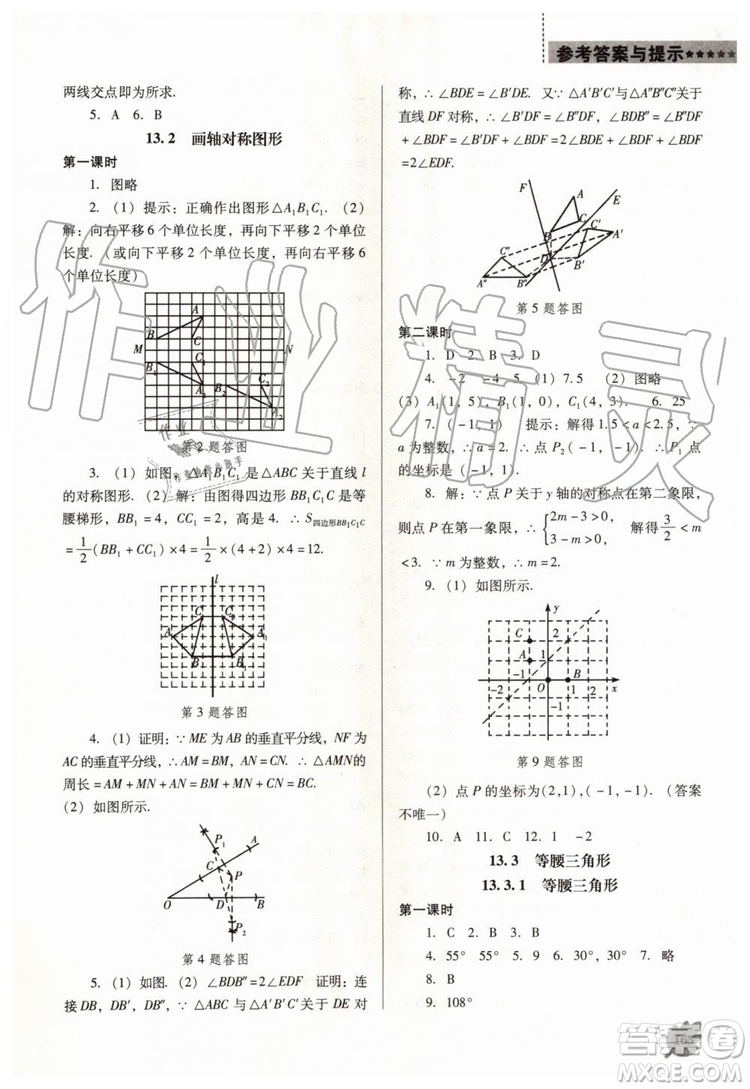 参考答案与提示★★★★★
两线交点即为所求.
5. A 6. B
13.2 画轴对称图形
第一课时
1. 图略
2. (1) 提示：正确作出图形△A₁B₁C₁. (2)
解：向右平移6个单位长度，再向下平移2个单位
长度. (或向下平移2个单位长度，再向右平移6
个单位长度)
A
B
C
M
N
第2题答图
3. (1) 如图，△A₁B₁C₁是△ABC关于直线l
的对称图形. (2) 解：由图得四边形BB₁C₁C是等
腰梯形，BB₁=4，CC₁=2，高是4. ∴S四边形BB₁C₁C
=1/2(BB₁+CC₁)×4=1/2(4+2)×4=12.
l
C
C₁
A
A₁
B
B₁
第3题答图
4. (1) 证明：∵ME为AB的垂直平分线，NF为
AC的垂直平分线，∴AM=BM，AN=CN. ∴△AMN的
周长=AM+MN+AN=BM+MN+CN=BC.
(2) 如图所示.
P₁
A
C
P
O
D
B
P₂
第4题答图
5. (1) 如图. (2) ∠BDB″=2∠EDF 证明：连
接DB，DB′，DB″，∵△ABC与△A′B′C′关于DE对
称，∴∠BDE=∠B′DE. 又∵△A′B′C′与△A″B″C″关于
直线DF对称，∴∠B′DF=∠B″DF，∴∠BDF
+∠B″DF=∠BDF+∠B′DF=2∠BDE+2∠BDF
=2∠EDF.
F
E
C′
A′
C″
D
B′
A″
B″
第5题答图
第二课时
1. D 2. B 3. D
4. -2 -4 5. (1) 7.5 (2) 图略
(3) A₁(1，5)，B₁(1，0)，C₁(4，3). 6. 25
7. (-1，1) 提示：解得1.5<a<2.5. ∵
a为整数，∴a=2. ∴点P₂(-1，-1). ∴点P₁
的坐标是(-1，1).
8. 解：∵点P关于y轴的对称点在第二象限，
则点P在第一象限，∴{2m-3>0， 3-m>0， 解得3/2<m
<3. ∵m为整数，∴m=2.
9. (1) 如图所示.
y
C
2
A
1
-2 -1 O B 1 2 x
-1
第9题答图
(2) 点P的坐标为(2,1),(-1,-1). (答案
不唯一)
10. A 11. C 12. 1 -2
13.3 等腰三角形
13.3.1 等腰三角形
第一课时
1. C 2. B 3. B
4. 55° 55° 5. 9 6. 30°，30° 7. 略
8. B
9. 108°
作业精灵
答案圈
MXQE.COM